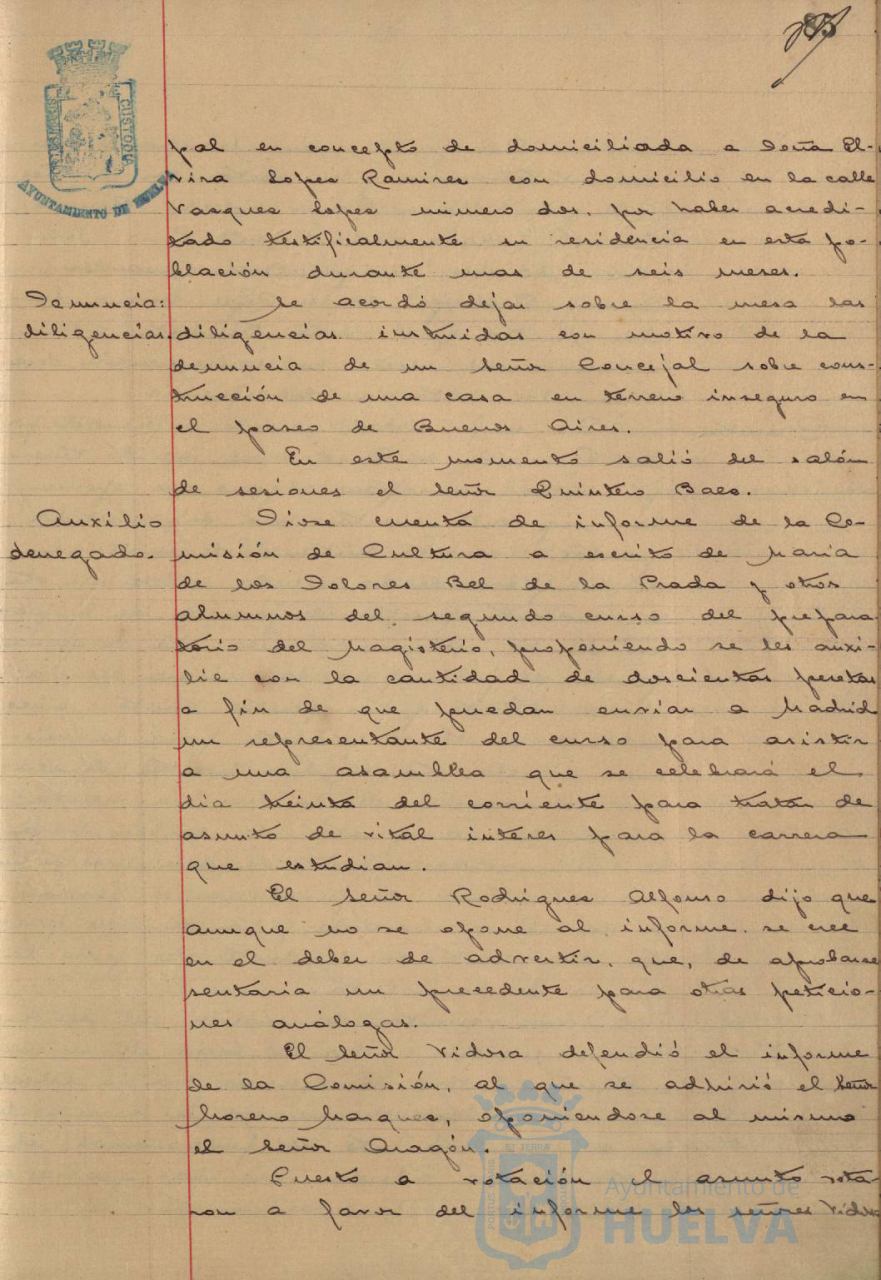 pal en concepto de domiciliada a Doña El-
vira Lopes Ramires con domicilio en la calle
Vasques Lopes número dos, por haber acredi-
tado testificalmente su residencia en esta po-
blación durante mas de seis meses.
Denuncia:
diligencias.
Se acordó dejar sobre la mesa las
diligencias instruidas con motivo de la
denuncia de un Señor Concejal sobre cons-
trucción de una casa en terreno inseguro en
el paseo de Buenos Aires.
En este momento salió del salón
de sesiones el Señor Quintero Baes.
Auxilio
denegado.
Diose cuenta de informe de la Co-
misión de Cultura a escrito de Maria
de los Dolores Bel de la Prada y otros
alumnos del segundo curso del prepara
torio del Magisterio, proponiendo se les auxi-
lie con la cantidad de doscientas pesetas
a fin de que puedan enviar a Madrid
un representante del curso para asistir
a una asamblea que se celebrará el
dia treinta del corriente para tratar de
asunto de vital interes para la carrera
que estudian.
El Señor Rodrigues Alfonso dijo que
aunque no se opone al informe se cree
en el deber de advertir, que, de aprobarse
sentaria un precedente para otras peticio-
nes análogas.
El Señor Vidosa defendió el informe
de la Comisión, al que se adhirió el Señor
Moreno Marques, oponiendose al mismo
el Señor Aragón.
Puesto a votación el asunto vota-
ron a favor del informe los señores Vidosa
AYUNTAMIENTO DE HUELVA
Ayuntamiento de
HUELVA